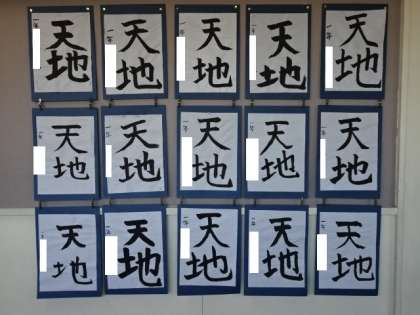 天地
一年
天地
一年
天地
一年
天地
一年
天地
一年
天地
一年
天地
一年
天地
一年
天地
一年
天地
一年
天地
一年
天地
一年
天地
一年
天地
一年
天地
一年